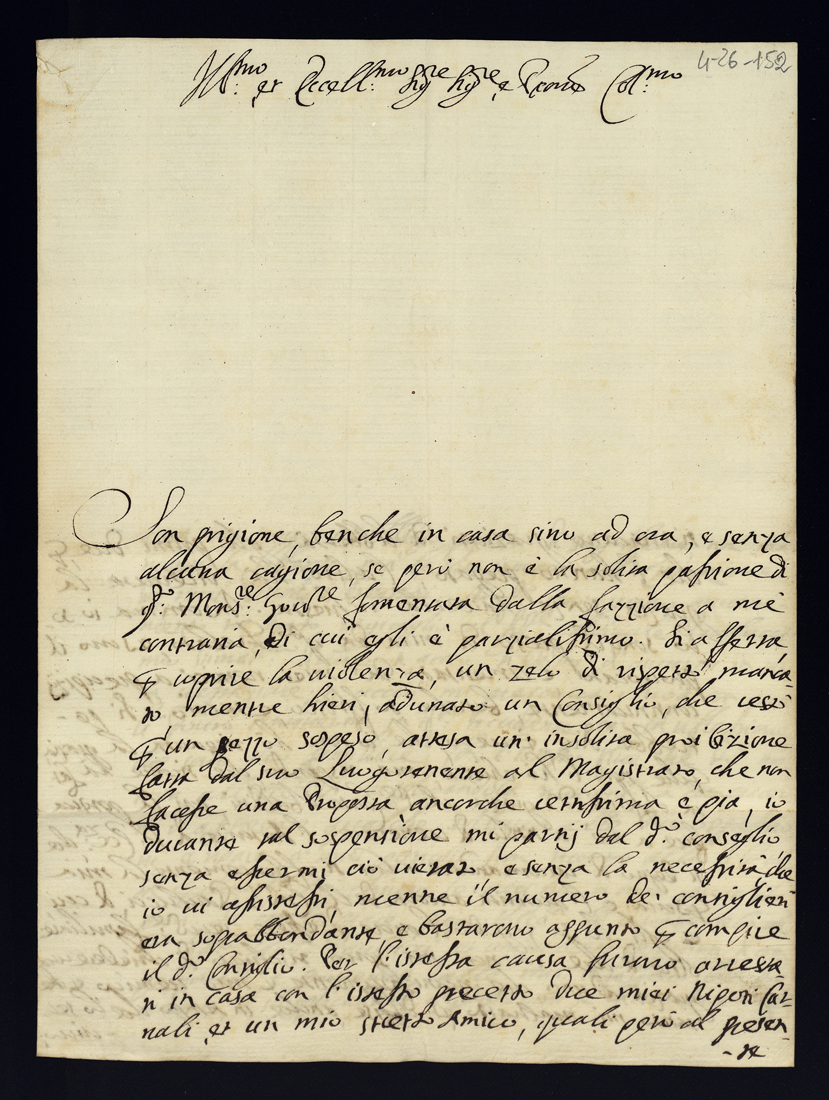 4-26-152
Ill:mo et Eccell:mo Sig.re Sig.re e Prone Col:mo
Son prigione, benche in casa sino ad ora, e senza
alcuna cagione, se però non è la solita passione di
q.o Mons.re Gov.re fomentata dalla fazzione a me
contraria, di cui egli è parzialissimo. Si asserva,
p coprire la violenza, un zelo di rispetto manca-
to mentre hieri, adunato un Consiglio, che restò
p un pezzo sospeso, attesa un' insolita proibizione
fatta dal suo Luogotenente al Magistrato, che non
facesse una Proposta ancorche certissima e pia, io
durante tal sospensione mi partij dal d.o conseglio
senza essermi ciò vietato e senza la necessità che
io vi assistessi, mentre il numero de' consiglieri
era soprabbondante, e bastarono appunto p compire
il d.o Consiglio. Per l'istessa causa furono arresta-
ti in casa con l'istesso precetto due miei Nipoti Car-
nali, et un mio stretto Amico, quali però al presen-
-te